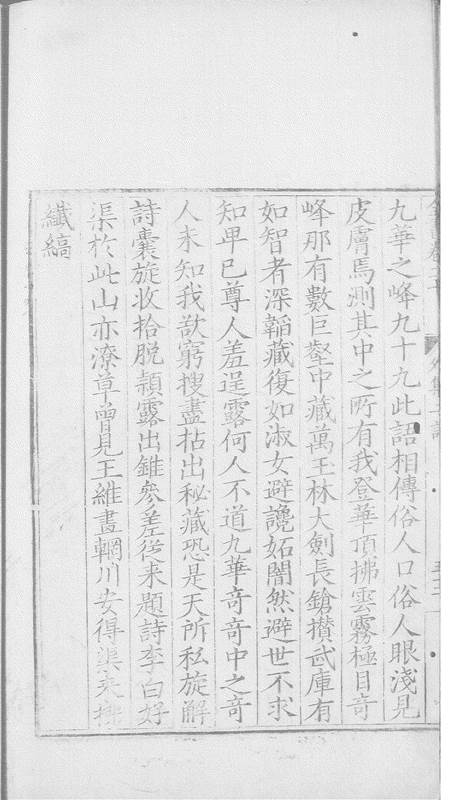 全書卷二十 外集二 詩
九華之峰九十九此語相傳俗人口俗人眼淺見
皮膚焉測其中之所有我登華頂拂雲霧極目竒
峰那有數巨壑中藏萬玉林大劍長鎗攢武庫有
如智者深韜藏復如淑女避讒妬闇然避世不求
知卑已尊人羞逞露何人不道九華竒竒中之竒
人未知我欲窮搜盡拈出秘藏恐是天所私旋解
詩囊旋收拾脫頴露出錐參差從来題詩李白好
渠於此山亦潦草曾見王維畫輞川安得渠來拂
纎縞